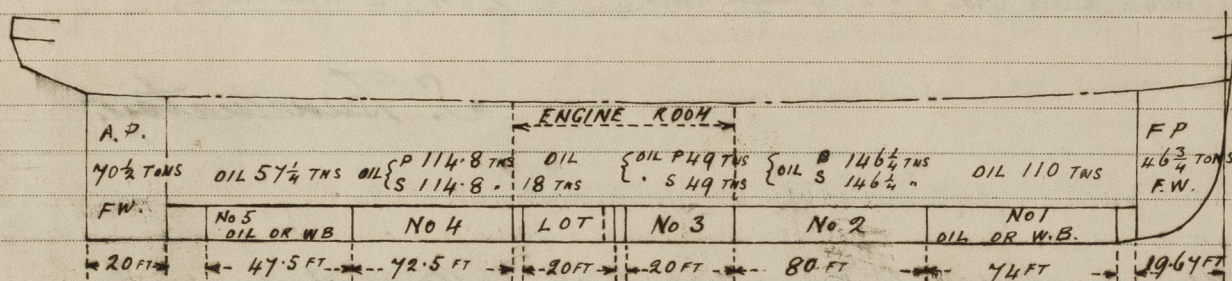 ENGINE ROOM
A.P.
70½ TONS
F.W.
OIL 57¼ TNS
OIL { P 114.8 TNS
S 114.8 "
OIL
18 TNS
{ OIL P 49 TNS
" S 49 TNS
{ OIL P 146¼ TNS
S 146¼ "
OIL 110 TNS
F P
46¾ TONS
F.W.
No 5
OIL OR WB
No 4
LOT
No 3
No 2
No 1
OIL OR W.B.
20 FT
47.5 FT
72.5 FT
20 FT
20 FT
80 FT
74 FT
19.67 FT